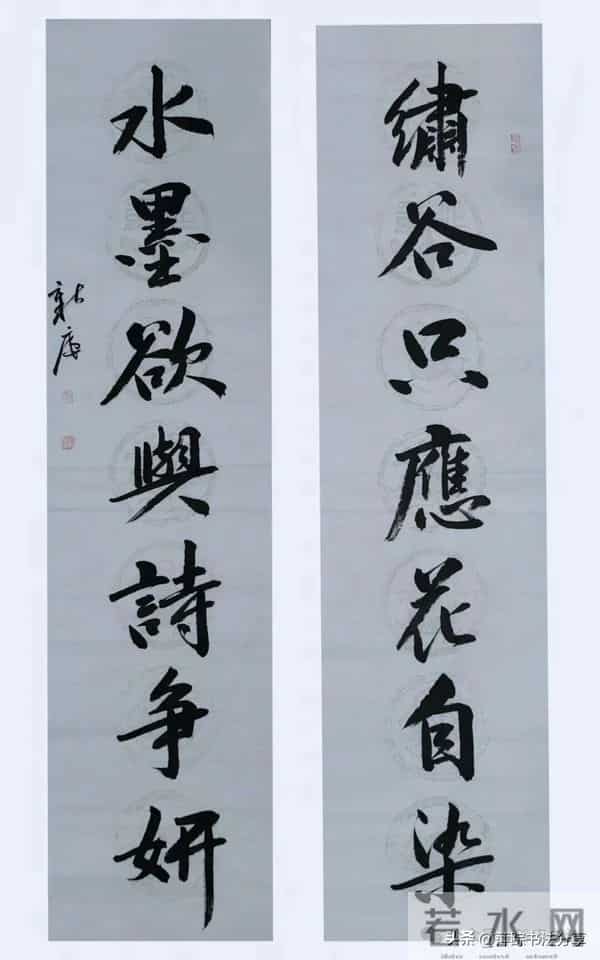 繡谷只應花自染
水墨欲與詩争妍
若水网
头条 @翰墨书法分享